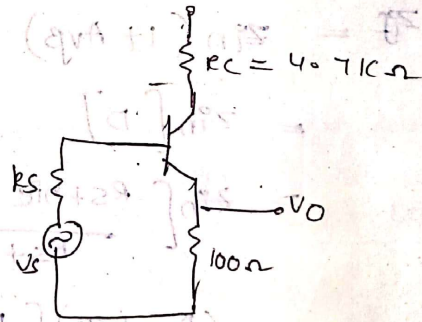 RC = 4.7KΩ
RS
VS
VO
100Ω